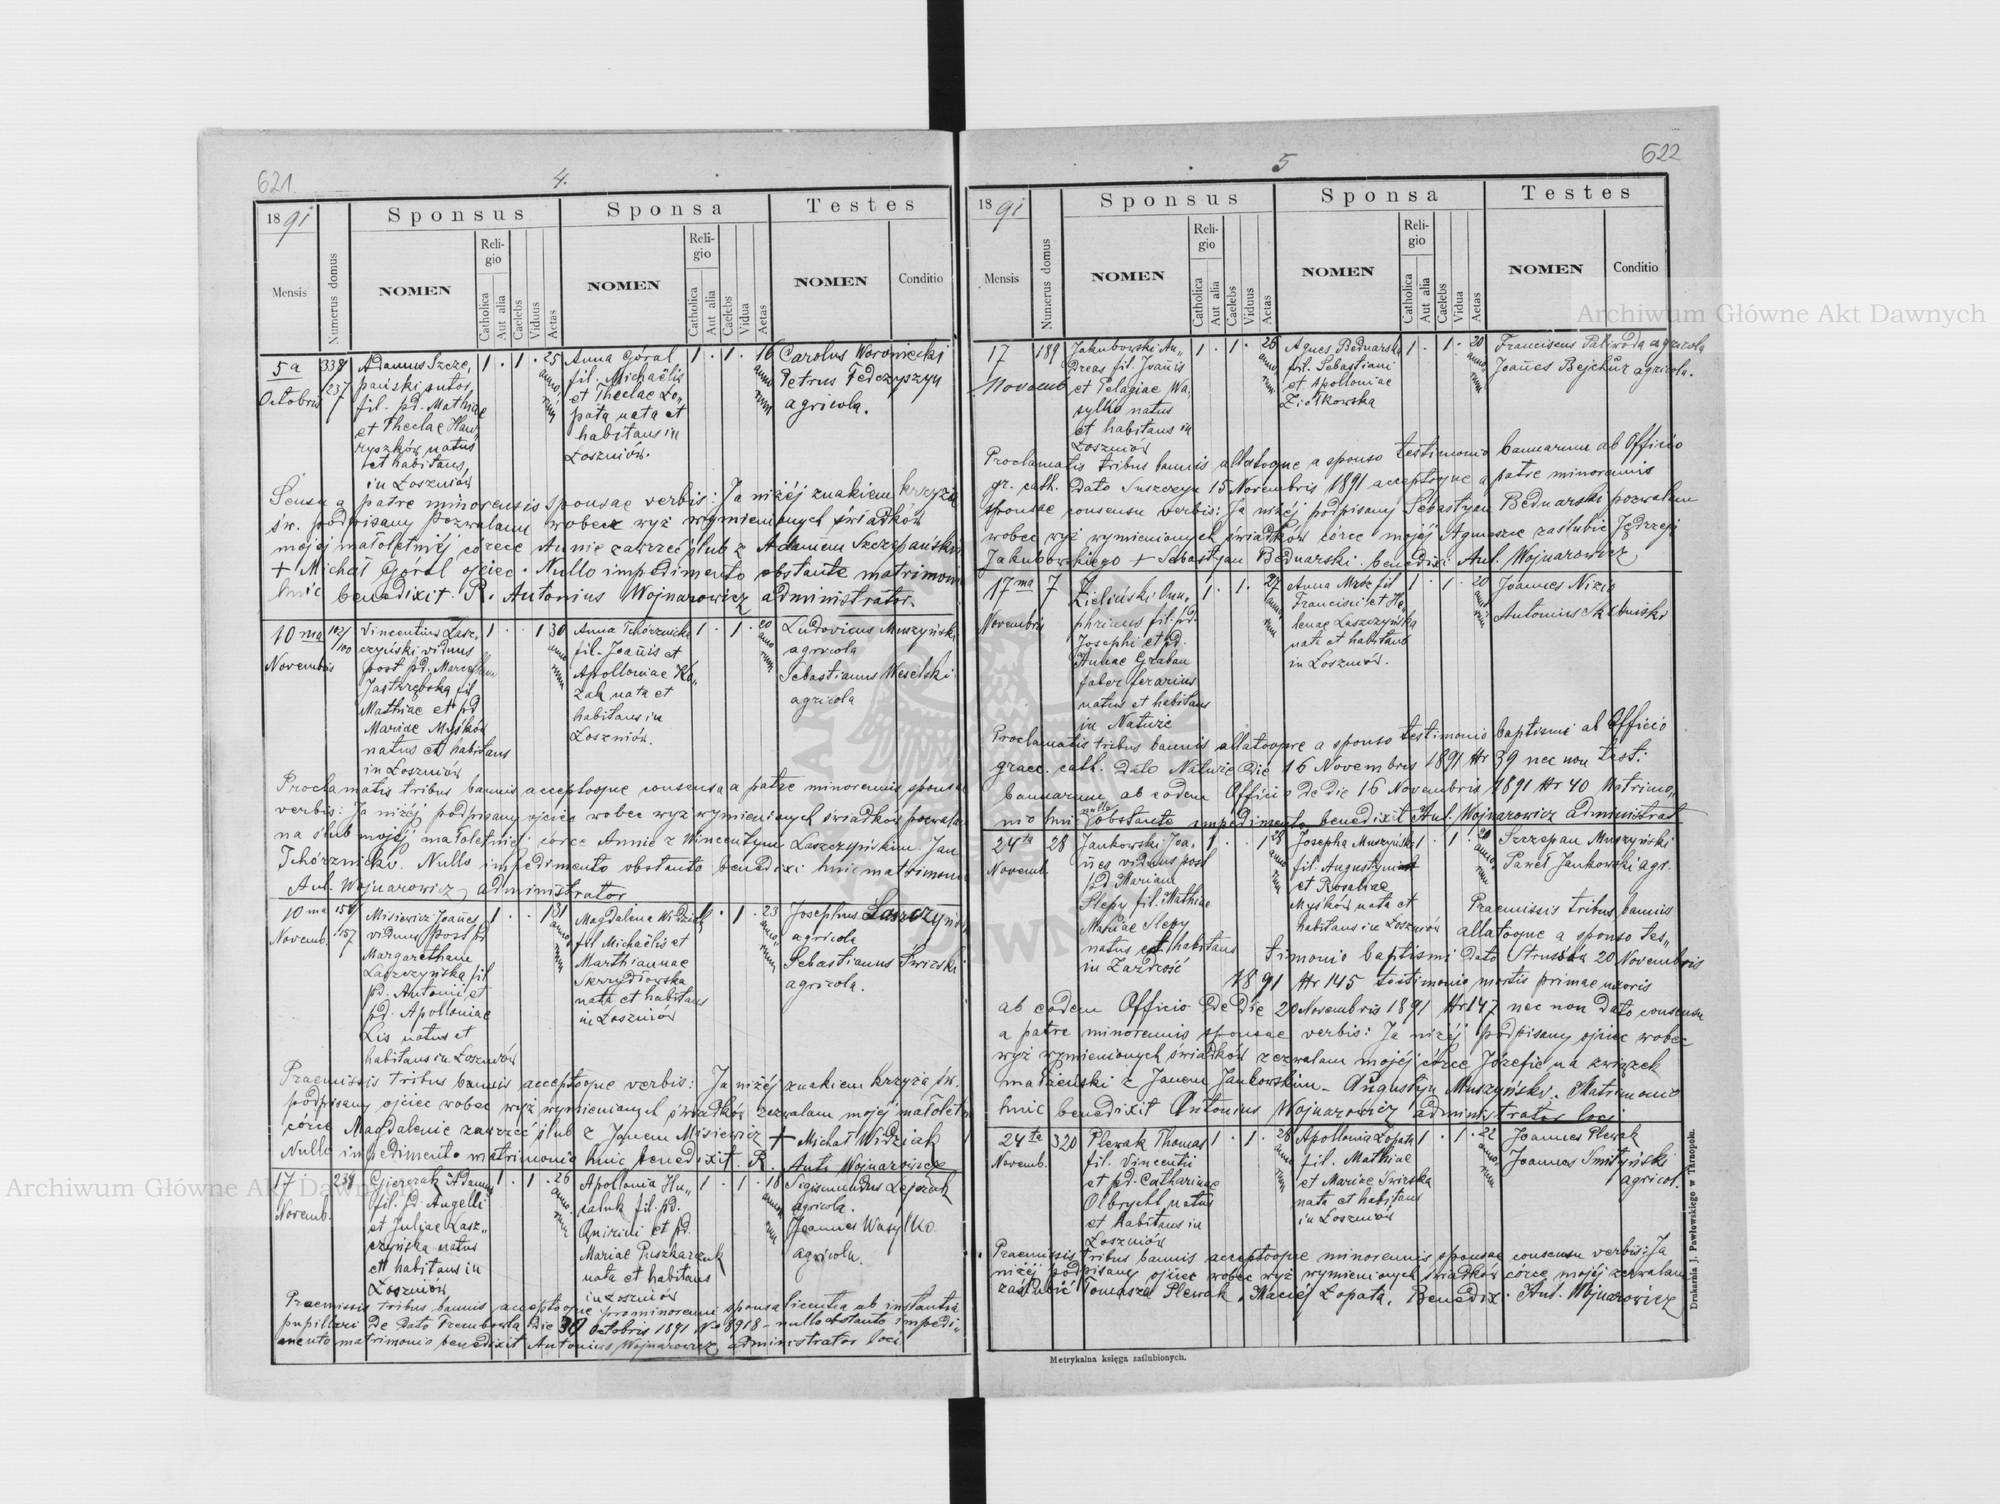 621.
4.
1891
Sponsus
Sponsa
Testes
Mensis
Numerus domus
NOMEN
Religio
Catholica
Aut alia
Caelebs
Viduus
Aetas
NOMEN
Religio
Catholica
Aut alia
Caelebs
Vidua
Aetas
NOMEN
Conditio
5a
Octobris
338
237
Adamus Szcze„
pański sutor
fil. pd. Mathiae
et Theclae Haw„
ryszków natus
et habitans
in Łoszniów
1 . 1 . 25
anno„
rum
Anna Góral
fil. Michaëlis
et Theclae Ło„
pata nata et
habitans in
Łoszniów.
1 . 1 . 16
anno
rum
Carolus Woroniecki
Petrus Fedczyszyn
agricola.
a patre minorensis sponsae verbis: Ja niżéj znakiem krzyża
św. podpisany pozwalam wobec wyż wymienionych świadków
mojéj małoletniéj córece Annie zawrzeć ślub z Adamem Szczepańskim
+ Michał Góral ojciec. Nullo impedimento obstante matrimoni
huic benedixit R. Antonius Wojnarowicz administrator.
10 ma
Novembris
107/100
Vincentius Łasz„
czyński viduus
post pd. Marcellam
Jastrzębska fil
Mathiae et pd
Mariae Myśków
natus et habitans
in Łoszniów
1 . . 1 30
anno
rum
Anna Tchórznicka
fil. Joañis et
Apolloniae Ko„
zak nata et
habitans in
Łoszniów.
1 . 1 . 20
anno
rum
Ludovicus Muszyński
agricola
Sebastianus Weselski
agricola
Proclamatis tribus bannis acceptoque consensu a patre minorensis sponsae
verbis: Ja niżéj podpisany ojciec wobec wyż wymienionych świadków pozwalam
na ślub mojéj małoletniéj córce Annie z Wincentym Łaszczyńskim Jan
Tchórznicki. Nullo impedimento obstante benedixi huic matrimonio
Ant. Wojnarowicz administrator
10 ma
Novemb.
157
Misiewicz Joañes
viduus post pd
Margaretham
Łaszczyńska fil
pd. Antonii et
pd. Apolloniae
Lis natus et
habitans in Łoszniów
1 . . 1 31
anno
rum
Magdalena Widziak
fil Michaëlis et
Marthiannae
Skrzydłowska
nata et habitans
in Łoszniów
1 . 1 . 23
anno„
rum
Josephus Łaszczyński
agricola
Sebastianus Świrski
agricola.
Praemissis tribus bannis acceptoque verbis: Ja niżéj znakiem krzyża św.
podpisany ojciec wobec wyż wymienionych świadków zezwalam mojéj małoletn
córce Magdalenie zawrzeć ślub z Janem Misiewicz + Michał Widziak
Nullo impedimento matrimonio huic benedixit R. Ant. Wojnarowicz
17
Novemb.
234
Adamus
fil. pd. Angelli
et Juliae Łasz„
czyńska natus
et habitans in
Łoszniów
1 . 1 . 26
anno
rum
Apollonia Hu„
saluk fil. pd.
Quirini et pd.
Mariae Puszkarczuk
nata et habitans
in Łoszniów
1 . 1 . 18
anno
rum
Sigismundus Lejczak
agricola.
Joannes Wasylko
agricola.
Praemissis tribus bannis acceptoque pro minorenni sponsa licentia ab instantia
pupillari De Dato Trembowla Die 30 Octobris 1891 No 8918 – nullo obstante impedi„
mento matrimonio benedixit Antonius Wojnarowicz administrator loci
5
622
1891
Sponsus
Sponsa
Testes
Mensis
Numerus domus
NOMEN
Religio
Catholica
Aut alia
Caelebs
Viduus
Aetas
NOMEN
Religio
Catholica
Aut alia
Caelebs
Vidua
Aetas
NOMEN
Conditio
17
Novemb
189
Jakubowski An„
dreas fil. Joañis
et Pelagiae Wa„
sylko natus
et habitans in
Łoszniów
1 . 1 . 26
anno
rum
Agnes Bednarska
fil. Sebastiani
et Apolloniae
Ziółkowska
1 . 1 . 20
anno
rum
Franciscus Pakwoda agricola
Joañes Bejchur agricola.
Proclamatis tribus bannis allatoque a sponso testimonio bannorum ab Officio
gr. cath. Dato Suszczyn 15 Novembris 1891 acceptoque a patre minorennis
sponsae consensu verbis: Ja niżéj podpisany Sebastyan Bednarski pozwalam
wobec wyż wymienionych świadków córce mojéj Agnieszce zaślubić Jędrzeja
Jakubowskiego + Sebastyan Bednarski. benedixi Ant. Wojnarowicz
17ma
Novembris
7
Zieliński Onu„
phrius fil. pd.
Josephi et pd.
Annae Graban
faber ferarius
natus et habitans
in Nałuże
1 . 1 . 27
anno
rum
Anna Mróz fil
Francisci et He„
lenae Łaszczyńska
nata et habitans
in Łoszniów.
1 . 1 . 20
anno
rum
Joannes Nizio
Antonius
Proclamatis tribus bannis allatoque a sponso testimonio baptismi ab Officio
graec. cath. Dato Nałuże Die 16 Novembris 1891 Nr 39 nec non test:
bannorum ab eodem Officio De die 16 Novembris 1891 Nr 40 Matrimo„
nio huic nullo obstante impedimento benedixit Ant. Wojnarowicz administrat
24ta
Novemb.
28
Jankowski Joa„
ñes viduus post
pd. Mariam
Slepy fil. Mathiae
Mariae Slepy
natus et habitans
in Zazdrość
1 . . 1 28
anno
rum
Josepha Muszyńska
fil. Augustyni
et Rosaliae
Myśków nata et
habitans in Łoszniów
1 . 1 . 20
anno„
rum
Szczepan Muszyński
Paweł Jankowski agr.
Praemissis tribus bannis
allatoque a sponso tes„
timonio baptismi Dato Strusów 20 Novembris
1891 Nr 145 testimonio mortis primae uxoris
ab eodem Officio De die 20 Novembris 1891 Nr 147 nec non dato consensu
a patre minorennis sponsae verbis: Ja niżéj podpisany ojciec wobec
wyż wymienionych świadków zezwalam mojéj córce Józefie na związek
małżeński z Janem Jankowskim – Augustyn Muszyński. Matrimonio
huic benedixit Antonius Wojnarowicz administrator loci
24ta
Novemb.
320
Plewak Thomas
fil. Vincentii
et pd. Catharinae
Olbrycht natus
et habitans in
Łoszniów
1 . 1 . 28
anno
rum
Apollonia Łopata
fil. Mathiae
et Mariae Świrska
nata et habitans
in Łoszniów
1 . 1 . 22
anno„
rum
Joannes Plewak
Joannes Śmityński
agricol.
Praemissis tribus bannis acceptoque minorennis sponsae consensu verbis: Ja
niżéj podpisany ojciec wobec wyż wymienionych świadków córce mojéj zezwalam
zaślubić Tomasza Plewak. Maciéj Łopata. Benedix. Ant. Wojnarowicz
Metrykalna księga zaślubionych.
Drukarnia J. Pawłowskiego w Tarnopolu.
Archiwum Główne Akt Dawnych
Archiwum Główne Akt Dawnych